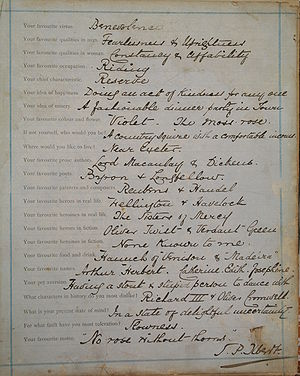 Your favourite virtue. Benevolence
Your favourite qualities in man. Fearlessness & Uprightness
Your favourite qualities in woman. Constancy & Affability
Your favourite occupation. Riding
Your chief characteristic. Reserve
Your idea of happiness. Doing an act of kindness to any one
Your idea of misery. A fashionable dinner party in Town
Your favourite colour and flower. Violet - The moss rose.
If not yourself, who would you be? A country Squire with a comfortable income
Where would you like to live? Near Exeter.
Your favourite prose authors. Lord Macaulay & Dickens.
Your favourite poets. Byron & Longfellow.
Your favourite painters and composers. Reubens & Handel
Your favourite heroes in real life. Wellington & Havelock
Your favourite heroines in real life. The Sisters of Mercy
Your favourite heroes in fiction. Oliver Twist & Verdant Green
Your favourite heroines in fiction. None Known to me.
Your favourite food and drink. Haunch of Venison & "Madeira"
Your favourite names. Arthur Herbert. Catherine Edith Josephine.
Your pet aversion. Having a stout & stupid person to dance with
What characters in history do you most dislike? Richard III & Oliver Cromwell
What is your present state of mind? In a state of delightful uncertainty
For what fault have you most toleration? Slowness.
Your favourite motto. "No rose without thorns"